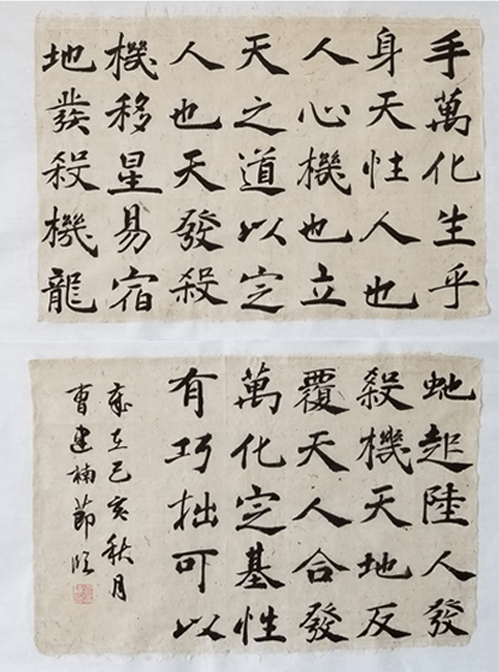 手萬化生乎
身天性人也
人心機也立
天之道以定
人也天發殺
機移星易宿
地發殺機龍
虵起陸人發
殺機天地反
覆天人合發
萬化定基性
有巧拙可以
歲在己亥秋月
曹建楠節臨